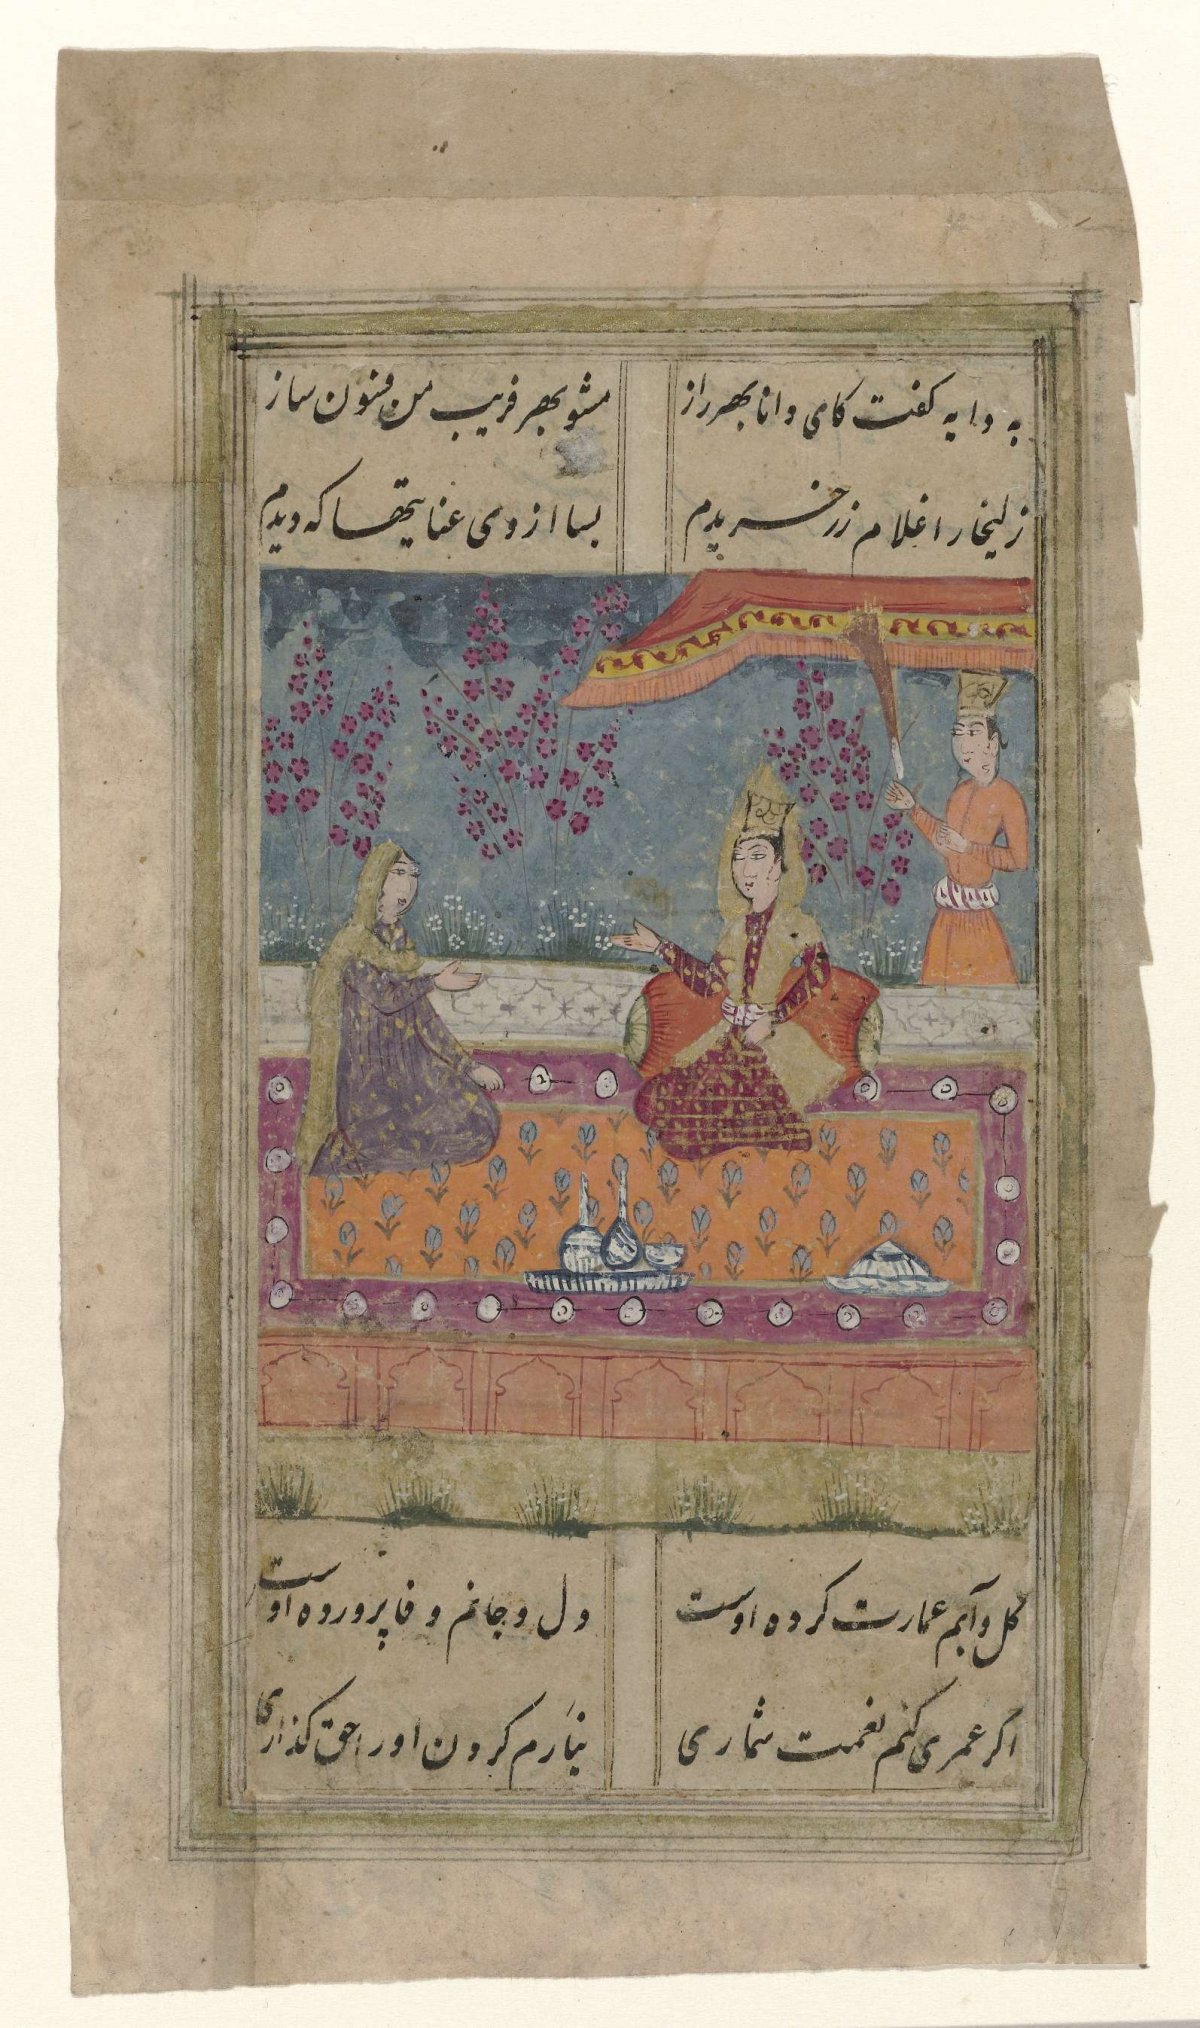 به دایه کفت کای دانا بهر راز
مشو بهر فریب من فنون ساز
زلیخا را غلام زرخریدم
بسا از وی عنایتها که دیدم
کل و آبم عمارت کرده اوست
دل و جانم وفا پرورده اوست
اکر عمری کنم نعمت شماری
نیارم کردن او را حق کذاری